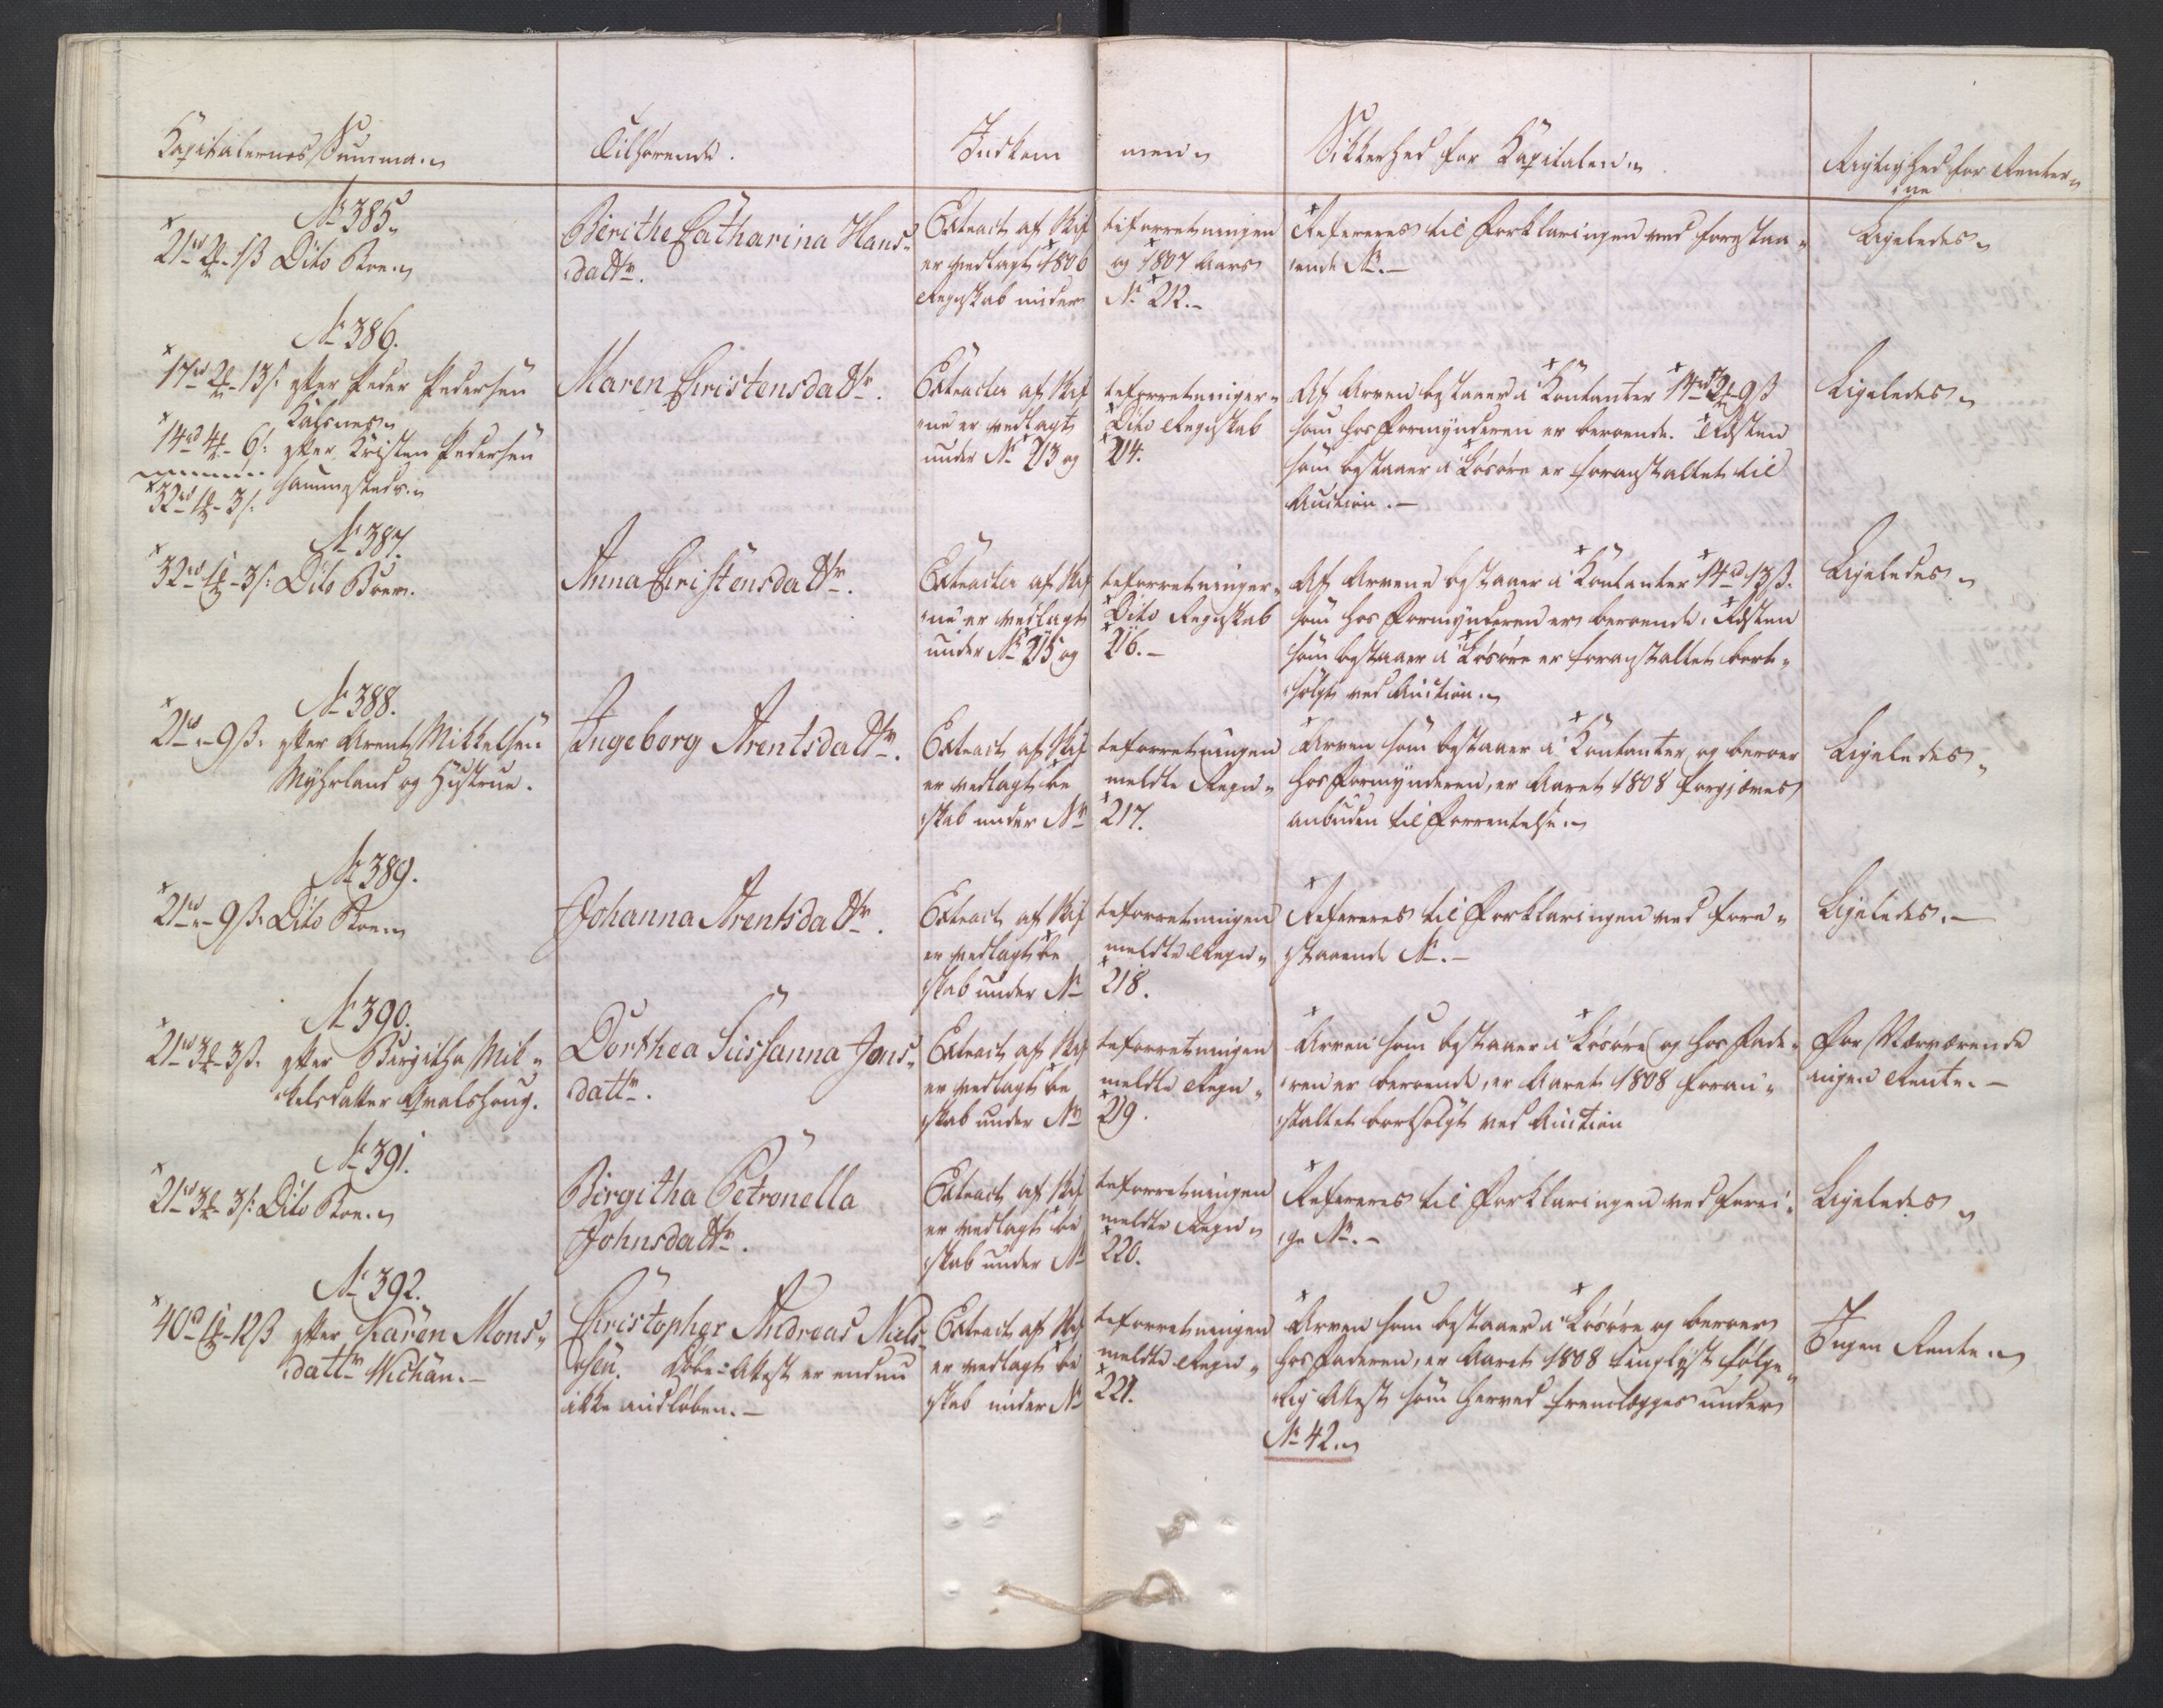 Kapitalernes Summa.
Tilhørende.
Indkom
men
Sikkerhed for Kapitalen.
Rigtighed for Renter
ne
No 385.
21rd 2 - 1ß Dito Boe.
Berithe Catharina Hans-
dattr.
Extract af Skif
er vedlagt 1806
Regnskab under
teforretningen
og 1807 Aars
No 212.
Refereres til Forklaringen ved forestaa-
ende No.
Ligeledes
No 386.
17rd 2 - 13ß efter Peder Pedersen
Kalsnes
14rd 4 - 6ß efter Kristen Pedersen
sammesteds.
32rd 1 - 3ß
Maren Christensdattr.
Extracter af Skif
ne er vedlagt
under No 213 og
teforretninger-
Dito Regnskab
214.
Af Arven bestaaer i Contanter 14rd 2 - 9ß
som hos Formynderen er beroende. Resten
som bestaaer i Løsøre er foranstaltet til
Auction.
Ligeledes
No 387.
32rd 1 - 3ß Dito Boer.
Anna Christensdattr.
Extracter af Skif
ne er vedlagt
under No 215 og
teforretninger-
Dito Regnskab
216.
Af Arven bestaaer i Contanter 14rd 13ß.
som hos Formynderen er beroende. Resten
som bestaaer i Løsøre er foranstaltet bort-
solgt ved Auction.
Ligeledes
No 388.
21rd - 9ß. efter Arent Mikkelsen
Myhrland og Hustrue.
Ingeborg Arentsdattr.
Extract af Skif
er vedlagt be
skab under No
teforretningen
meldte Regn-
217.
Arven som bestaaer i Contanter og beroer
hos Formynderen, er Aaret 1808 forgjæves
anbuden til Forrentelse.
Ligeledes
No 389.
21rd - 9ß. Dito Boe.
Johanna Arentsdattr.
Extract af Skif
er vedlagt be
skab under No
teforretningen
meldte Regn-
218.
Refereres til Forklaringen ved fore-
staaende No.
Ligeledes.
No 390.
21rd 3 - 3ß. efter Birgitha Mik-
kelsdatter Qvalshoug.
Dorthea Sussanna Jons-
dattr.
Extract af Skif
er vedlagt be
skab under No
teforretningen
meldte Regn-
219.
Arven som bestaaer i Løsøre og hos Fade-
ren er beroende, er Aaret 1808 foran-
staltet bortsolgt ved Auction
For Nærværende
ingen Rente.
No 391.
21rd 3 - 3ß. Dito Boe.
Birgitha Petronella
Johnsdattr.
Extract af Skif
er vedlagt be
skab under No
teforretningen
meldte Regn-
220.
Refereres til Forklaringen ved forri-
ge No.
Ligeledes
No 392.
40rd 1 - 12ß efter Karen Mons-
dattr Wichan.
Christopher Andreas Niels
sen. Døbe-Attest er endnu
ikke indløben.
Extract af Skif
er vedlagt be
skab under No
teforretningen
meldte Regn-
221.
Arven som bestaaer i Løsøre og beroer
hos Faderen, er Aaret 1808 tinglyst følge-
lig Attest som herved fremlægges under
No 42.
Ingen Rente.